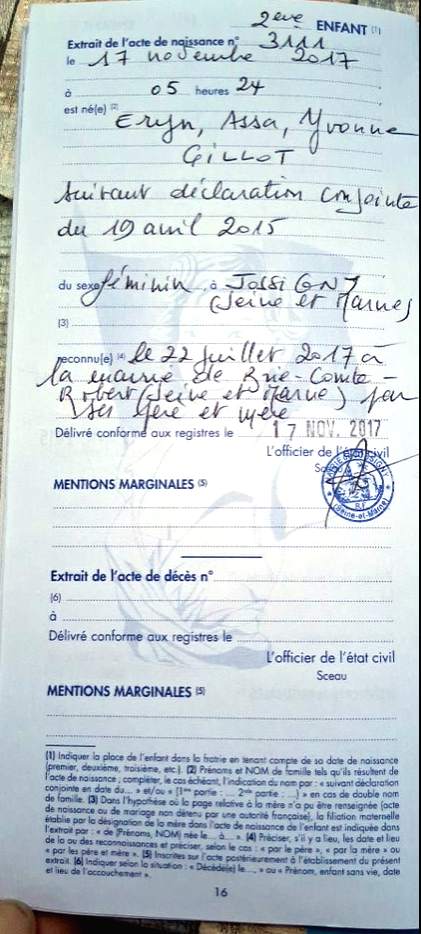 2eme ENFANT (1)
Extrait de l'acte de naissance n° 3111
le 17 novembre 2017
à 05 heures 24
est né(e) (2)
Eryn, Assa, Yvonne
GILLOT
Suivant déclaration conjointe
du 19 avril 2015
du sexe féminin à JOSSIGNY
(Seine et Marne)
(3)
reconnu(e) (4) le 22 juillet 2017 à
la mairie de Brie-Comte-
Robert (Seine et Marne) par
ses père et mère
Délivré conforme aux registres le 17 NOV. 2017
L'officier de l'état civil
Sceau
(Seine-et-Marne)
MENTIONS MARGINALES (5)
Extrait de l'acte de décès n°
(6)
à
Délivré conforme aux registres le
L'officier de l'état civil
Sceau
MENTIONS MARGINALES (5)
(1) Indiquer la place de l'enfant dans la fratrie en tenant compte de sa date de naissance
(premier, deuxième, troisième, etc.). (2) Prénoms et NOM de famille tels qu'ils résultent de
l'acte de naissance ; compléter, le cas échéant, l'indication du nom par : « suivant déclaration
conjointe en date du... » et/ou « (1ère partie : ... 2ème partie : ...) » en cas de double nom
de famille. (3) Dans l'hypothèse où la page relative à la mère n'a pu être renseignée (acte
de naissance ou de mariage non détenu par une autorité française), la filiation maternelle
établie par la désignation de la mère dans l'acte de naissance de l'enfant est indiquée dans
l'extrait par : « de (Prénoms, NOM) née le... à... ». (4) Préciser, s'il y a lieu, les date et lieu
de la ou des reconnaissances et préciser, selon le cas : « par le père », « par la mère » ou
« par les père et mère ». (5) Inscrites sur l'acte postérieurement à l'établissement du présent
extrait. (6) Indiquer selon la situation : « Décédé(e) le..., » ou « Prénom, enfant sans vie, date
et lieu de l'accouchement ».
16